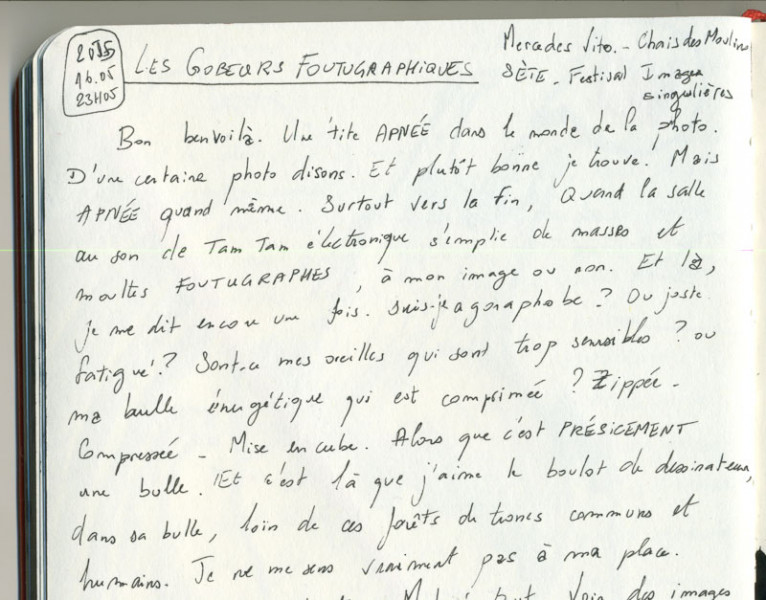 2015
16.05
23H05
LES GOBEURS FOUTUGRAPHIQUES
Mercedes Vito. - Chais des Moulins
SÈTE. Festival Images
singulières
Bon benvoilà. Une 'tite APNÉE dans le monde de la photo.
D'une certaine photo disons. Et plutôt bonne je trouve. Mais
APNÉE quand même. Surtout vers la fin, Quand la salle
au son de Tam Tam électronique s'emplie de masses et
moultes FOUTUGRAPHES, à mon image ou non. Et là,
je me dit encore une fois. Suis-je agoraphobe ? Ou juste
fatigué ? Sont-ce mes oreilles qui sont trop sensibles ? ou
ma bulle énergétique qui est comprimée ? Zippée -
Compressée - Mise en cube. Alors que c'est PRÉSICEMENT
une bulle. Et c'est là que j'aime le boulot de dessinateur,
dans sa bulle, loin de ces forêts de troncs communs et
humains. Je ne me sens vraiment pas à ma place.
Voir des images